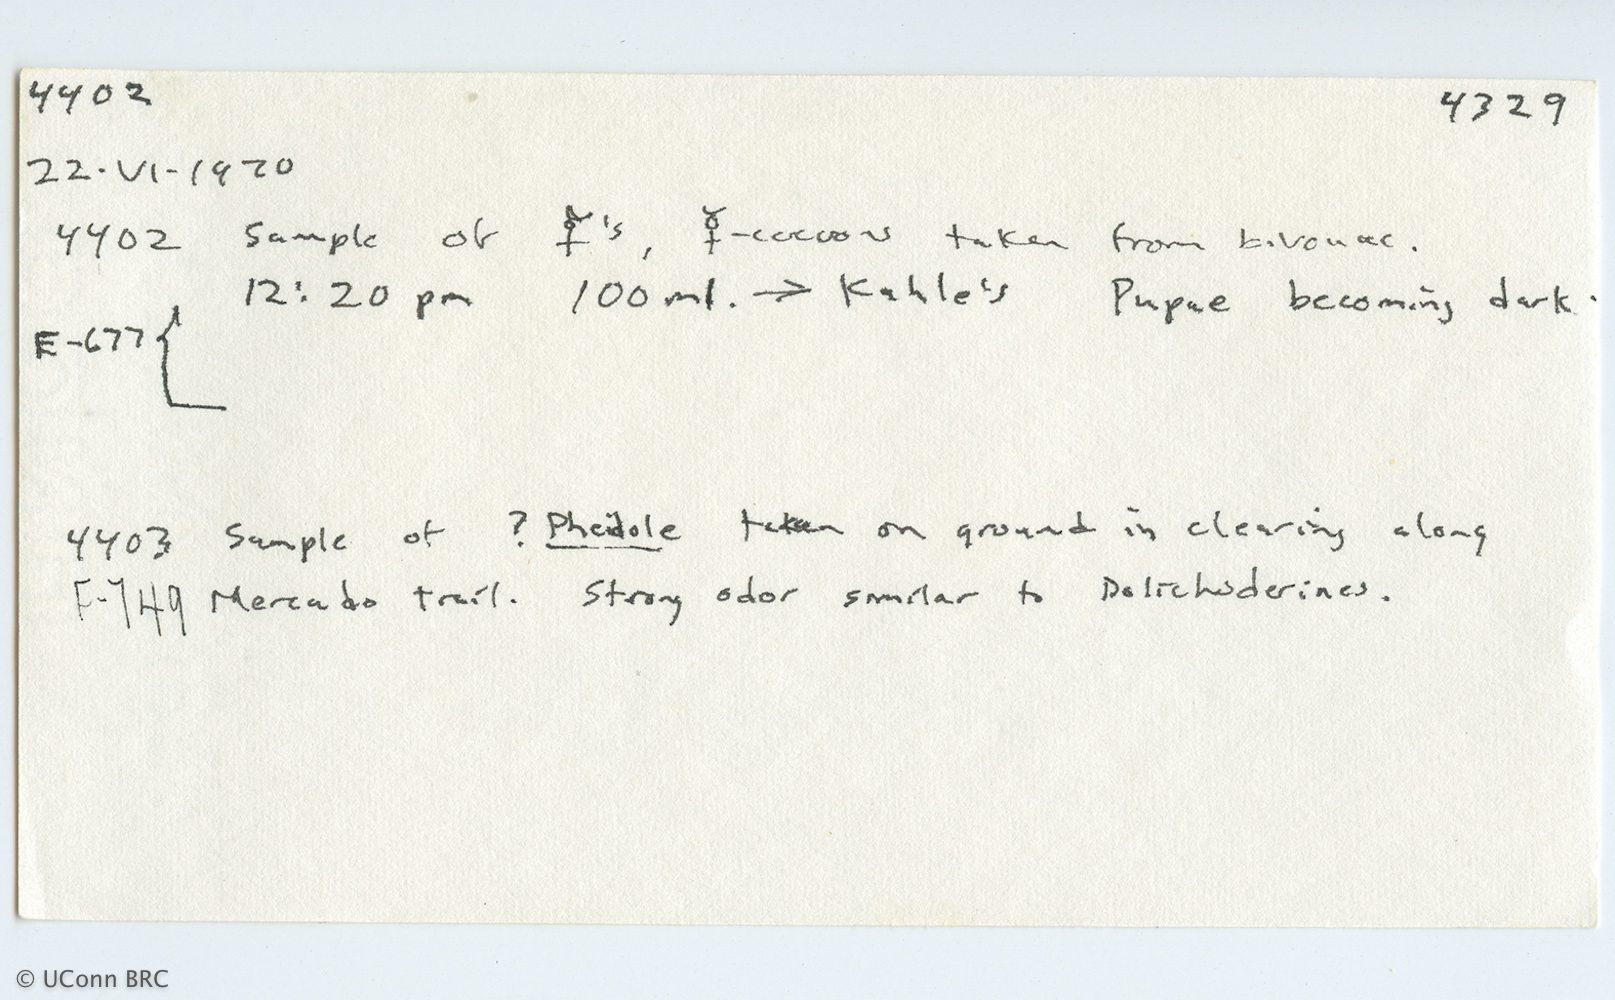 4402 4329
22-VI-1970
4402 Sample of ☿'s, ☿-cocoons taken from bivouac.
12:20 pm 100 ml. → Kahle's Pupae becoming dark.
E-677 {
4403 Sample of ? Pheidole taken on ground in clearing along
E-749 Mercado trail. Strong odor similar to Dolichoderines.
© UConn BRC